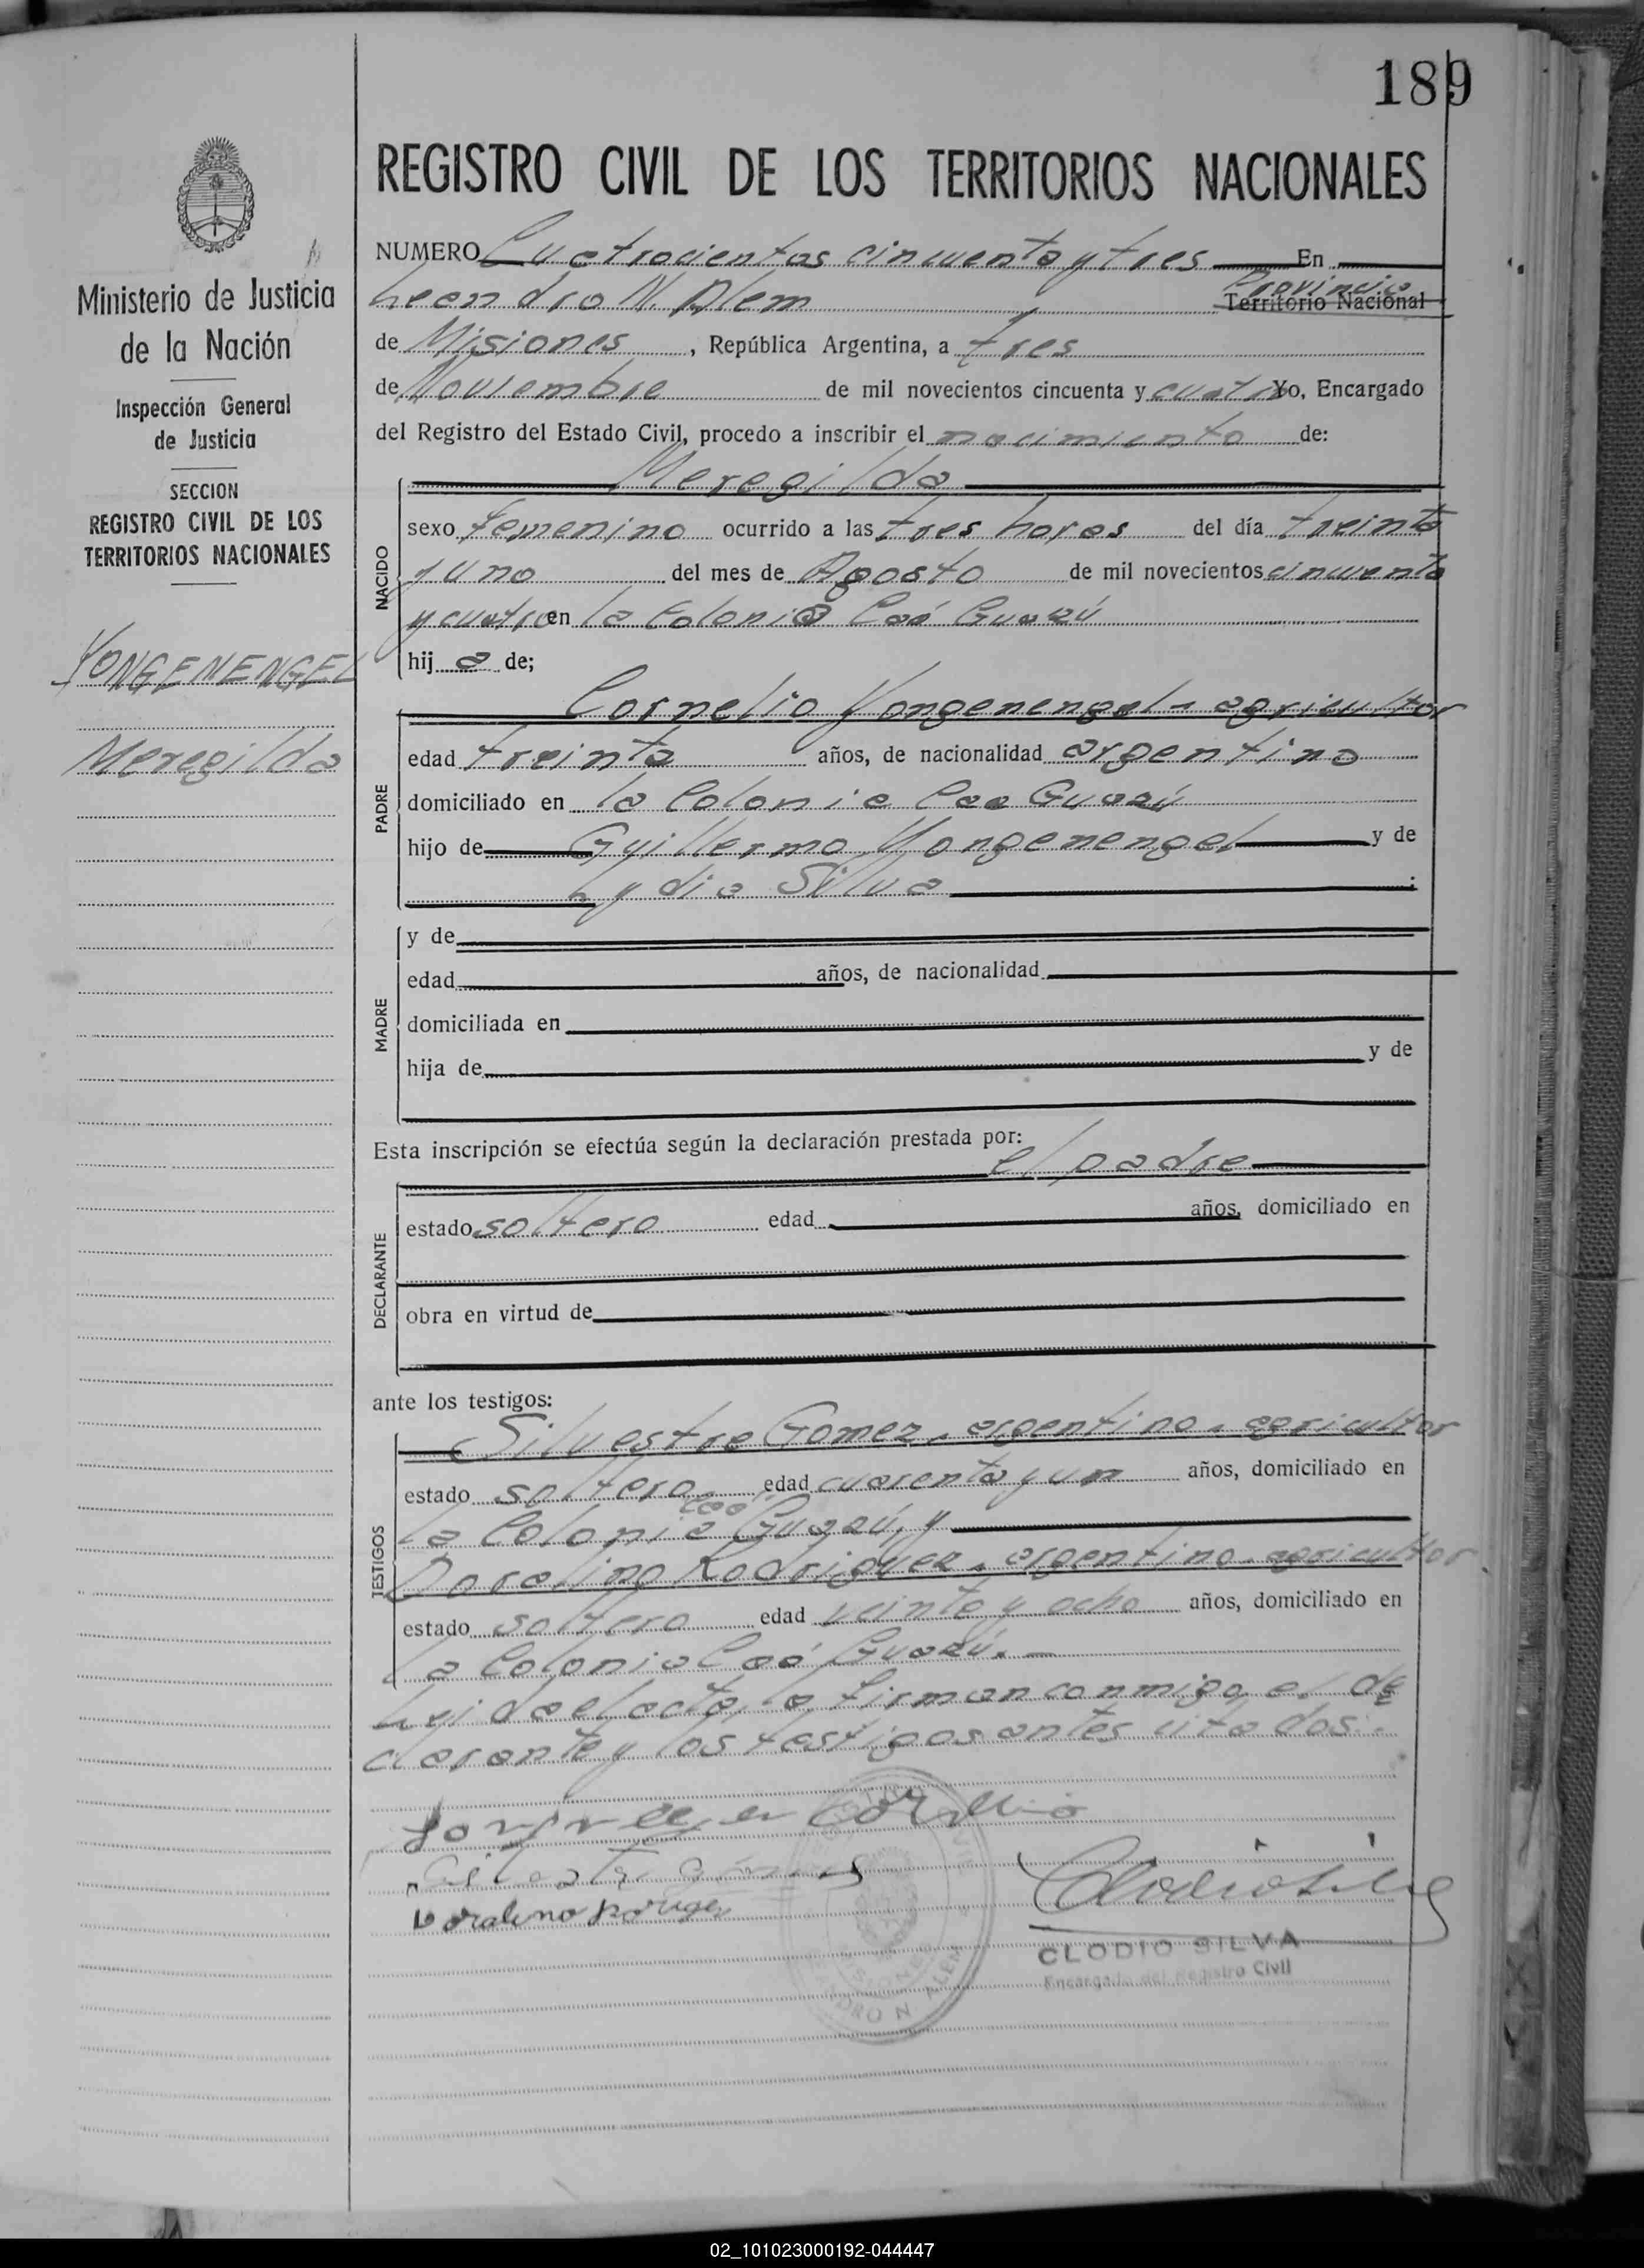 189
REGISTRO CIVIL DE LOS TERRITORIOS NACIONALES
Ministerio de Justicia
de la Nación
Inspección General
de Justicia
SECCION
REGISTRO CIVIL DE LOS
TERRITORIOS NACIONALES
YONGENENGEL
Meregilda
NUMERO Cuatrocientos cincuenta y tres En
Leandro N. Alem Provincia Territorio Nacional
de Misiones, República Argentina, a tres
de Noviembre de mil novecientos cincuenta y cuatro Yo, Encargado
del Registro del Estado Civil, procedo a inscribir el nacimiento de:
NACIDO
Meregilda
sexo femenino ocurrido a las tres horas del día treinta
y uno del mes de Agosto de mil novecientos cincuenta
y cuatro en la Colonia Caá Guazú
hij a de;
PADRE
Cornelio Yongenengel - agricultor
edad treinta años, de nacionalidad argentino
domiciliado en la Colonia Caa Guazú
hijo de Guillermo Yongenengel y de
Lydia Silva ;
MADRE
y de
edad años, de nacionalidad
domiciliada en
hija de y de
Esta inscripción se efectúa según la declaración prestada por:
el padre
DECLARANTE
estado soltero edad años, domiciliado en
obra en virtud de
ante los testigos:
TESTIGOS
Silvestre Gomez, argentino, agricultor
estado soltero edad cuarenta y un años, domiciliado en
la Colonia Caá Guazú, y
Doralino Rodriguez, argentino, agricultor
estado soltero edad veinte y ocho años, domiciliado en
la Colonia Caá Guazú.-
Leida el acta, la firman conmigo, el de
clarante y los testigos antes citados.-
Doralino
CLODIO SILVA
Encargado del Registro Civil
MISIONES
LEANDRO N. ALEM
02_101023000192-044447